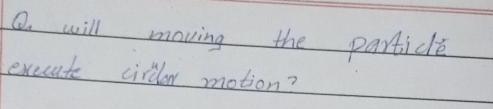 Q. will moving the particle
execute circular motion?